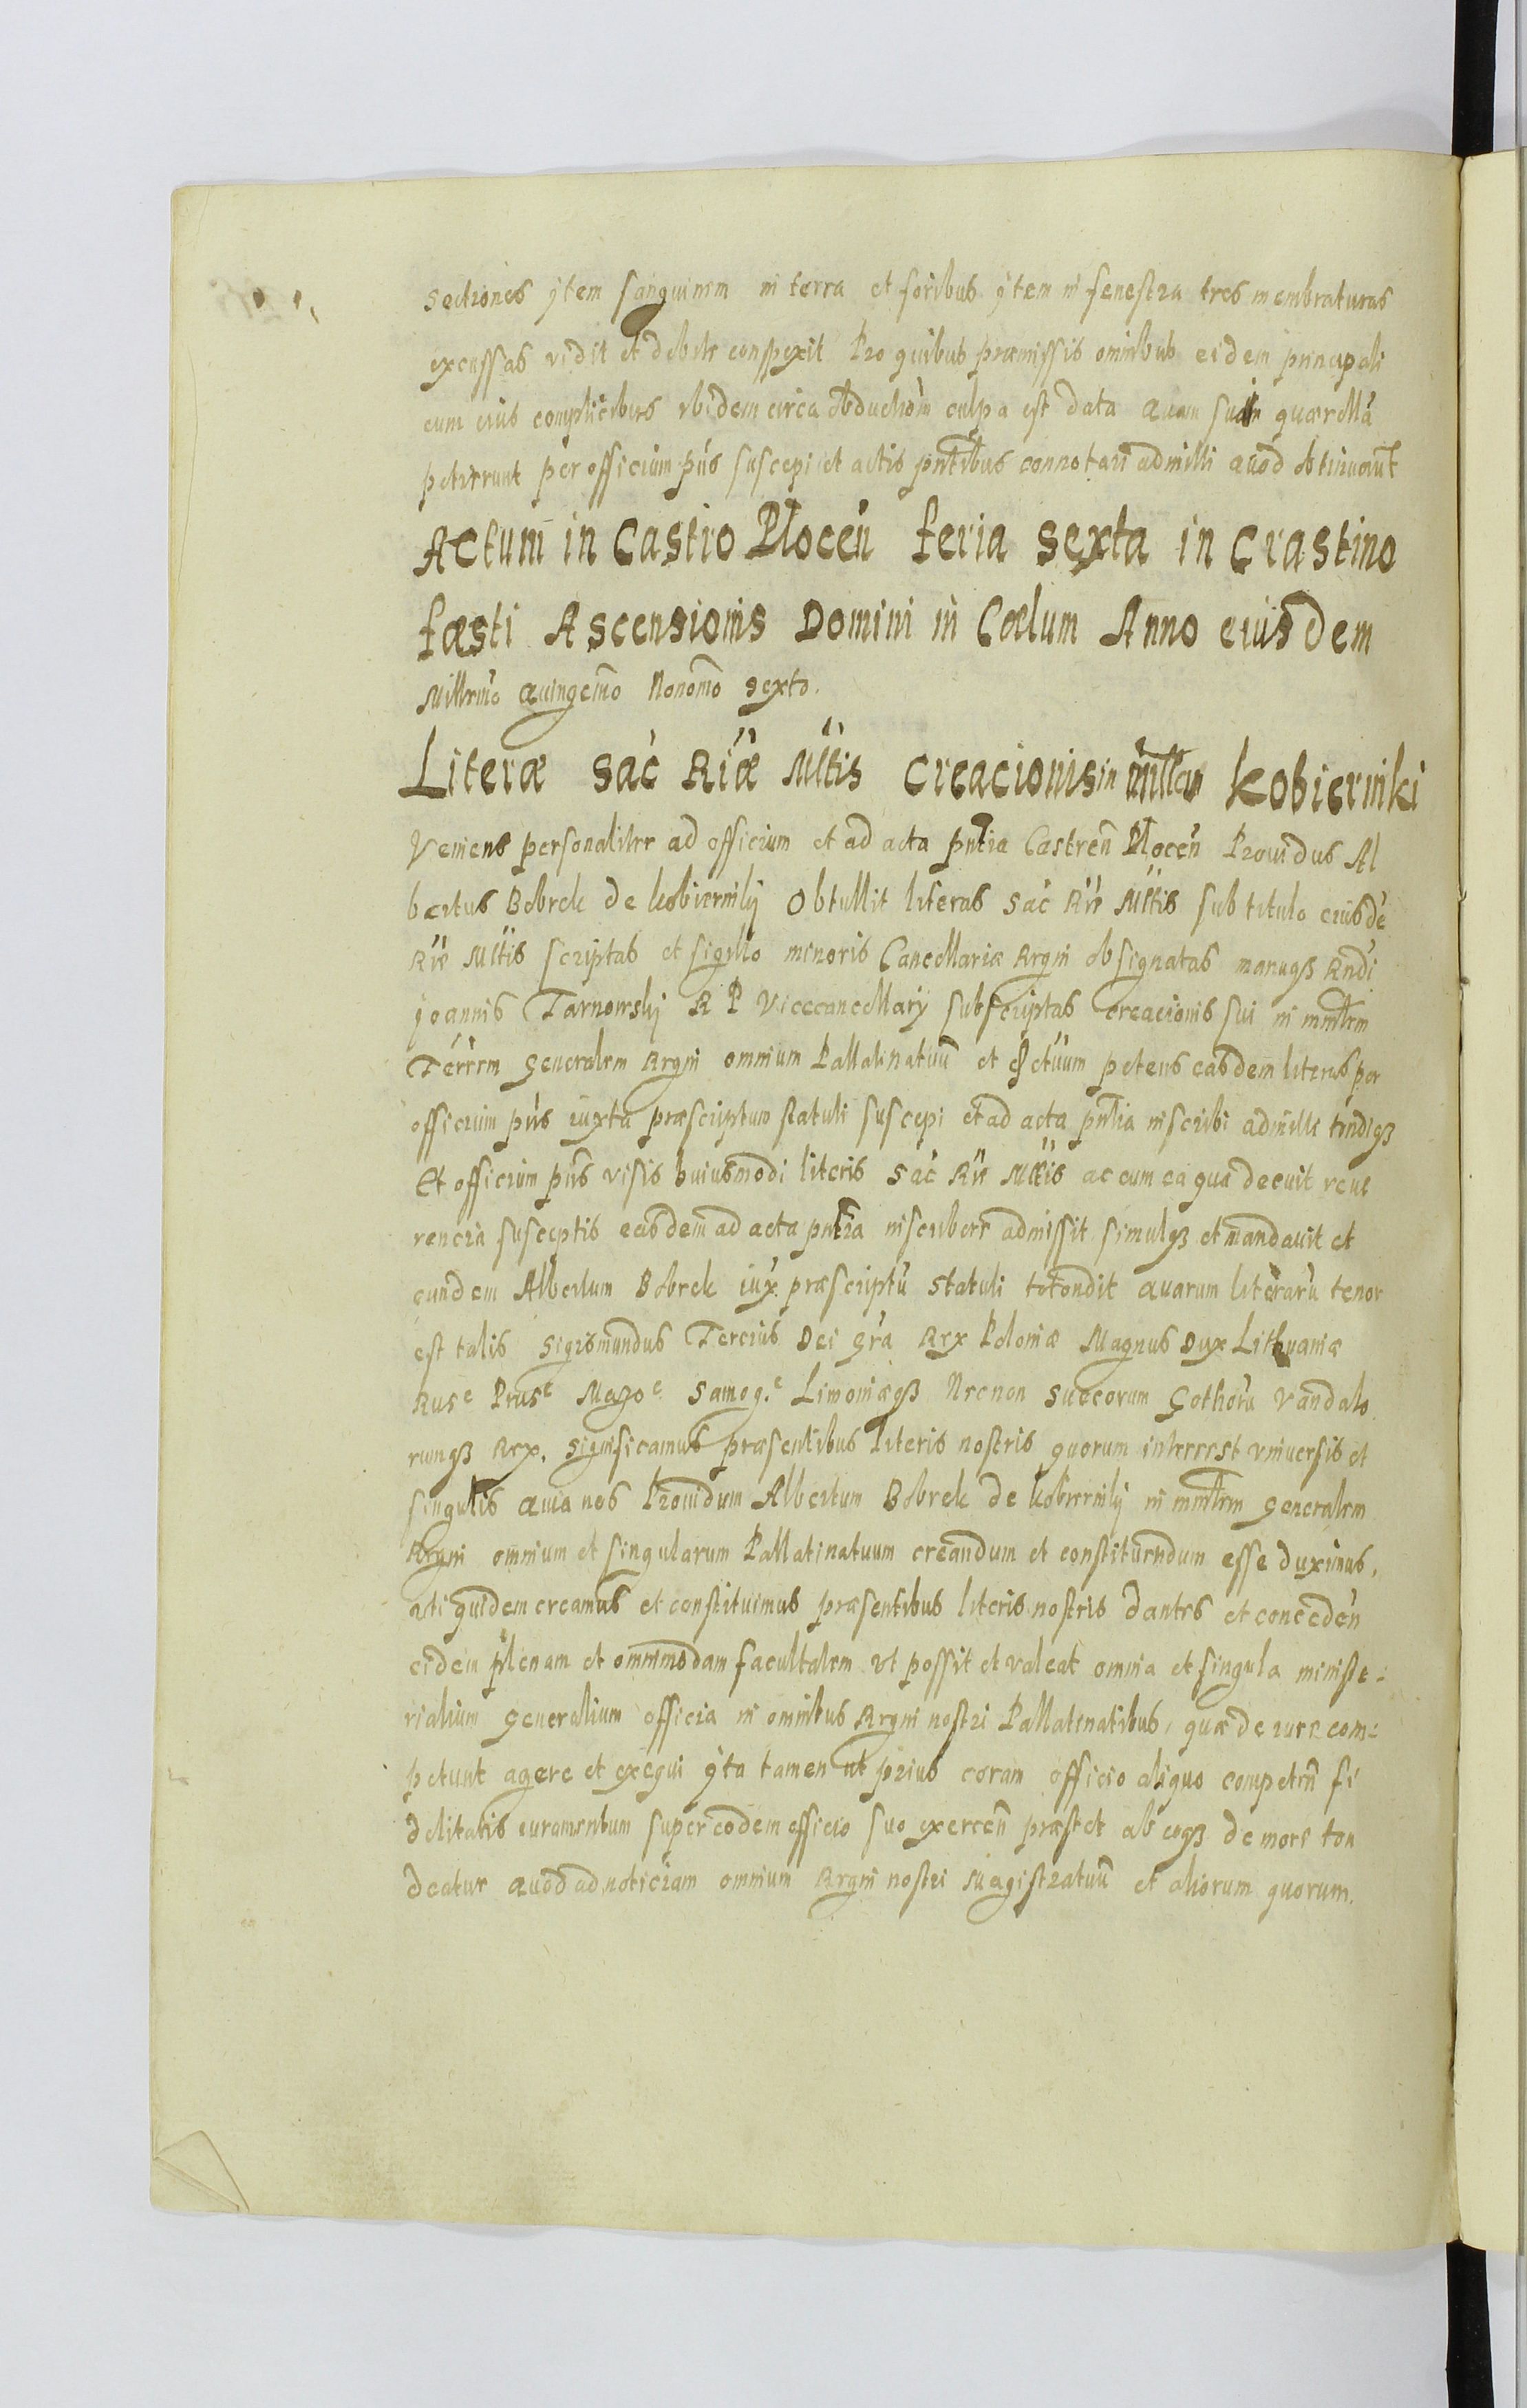 sectiones ytem sanguinem in terra et foribus ytem in fenestra tres membraturas
excussas vidit et debite conspexit Pro quibus præmissis omnibus eidem principali
cum eius complicibus ibidem circa obductiom culpa est data Quam suam quærellã
petierunt per officium pñs suscepi et actis pñtibus connotari admitti Quod obtinuerũt
Actum in Castro Plocen̄ feria sexta in Crastino
fæsti Ascensionis Domini in Cœlum Anno eiusdem
Millemo Quingemo Nonomo sexto.
Literæ Sac̄ Riæ Mtis Creacionis in Kobierniki
Veniens personaliter ad officium et ad acta pñtia Castren̄ Plocen̄ Prouidus Al
bertus Bobrek de Kobiernikj Obtullit literas Sac̄ Rie Mtis sub titulo eiusdē
Rie Mtis scriptas et sigillo minoris Cancellariæ Regni obsignatas manuqȝ Rndi
Joannis Tarnowskj R P Vicecancellarÿ subscriptas creacionis sui in mnlrem
Terrem Generalem Regni omnium Pallatinatuũ et petens easdem literas per
officium pñs iuxta præscriptum statuti suscepi et ad acta pñtia inscribi admitti tondiqȝ
Et officium pñs visis huiusmodi literis Sac̄ Rie Mtis ac cum ea qua decuit reue
rencia susceptis easdem ad acta pñtia inscribere admissit simulqȝ et mandauit et
eundem Albertum Bobrek iux̄ præscriptũ statuti totondit Quarum literarũ tenor
est talis Sigismundus Tercius Dei Grã Rex Poloniæ Magnus Dux Lithuaniæ
Rusᵉ Prusᵉ Mazoᵉ Samog.ᵉ Liuoniæqȝ Necnon Sueeorum Gothorũ Vandalo
rumqȝ Rex. Significamus præsentibus literis nostris quorum interest vniuersis et
singulis Quia nos Prouidum Albertum Bobrek de Kobiernikj in mnlrem Generalem
Regni omnium et singularum Pallatinatuum creandum et constituendum esse duximus,
uti quidem creamus et constituimus præsentibus literis nostris dantes et conceden̄
eidem plenam et omnimodam facultatem vt possit et valeat omnia et singula ministe-
rialium Generalium officia in omnibus Regni nostri Pallatinatibus, quæ de iure com-
petunt agere et exequi yta tamen ut prius coram officio aliquo competen̄ fi
delitatis iuramentum super eodem officio suo exercen̄ præstet ab eoqȝ de more ton
deatur Quod ad noticiam omnium Regni nostri Magistratuũ et aliorum quorum.